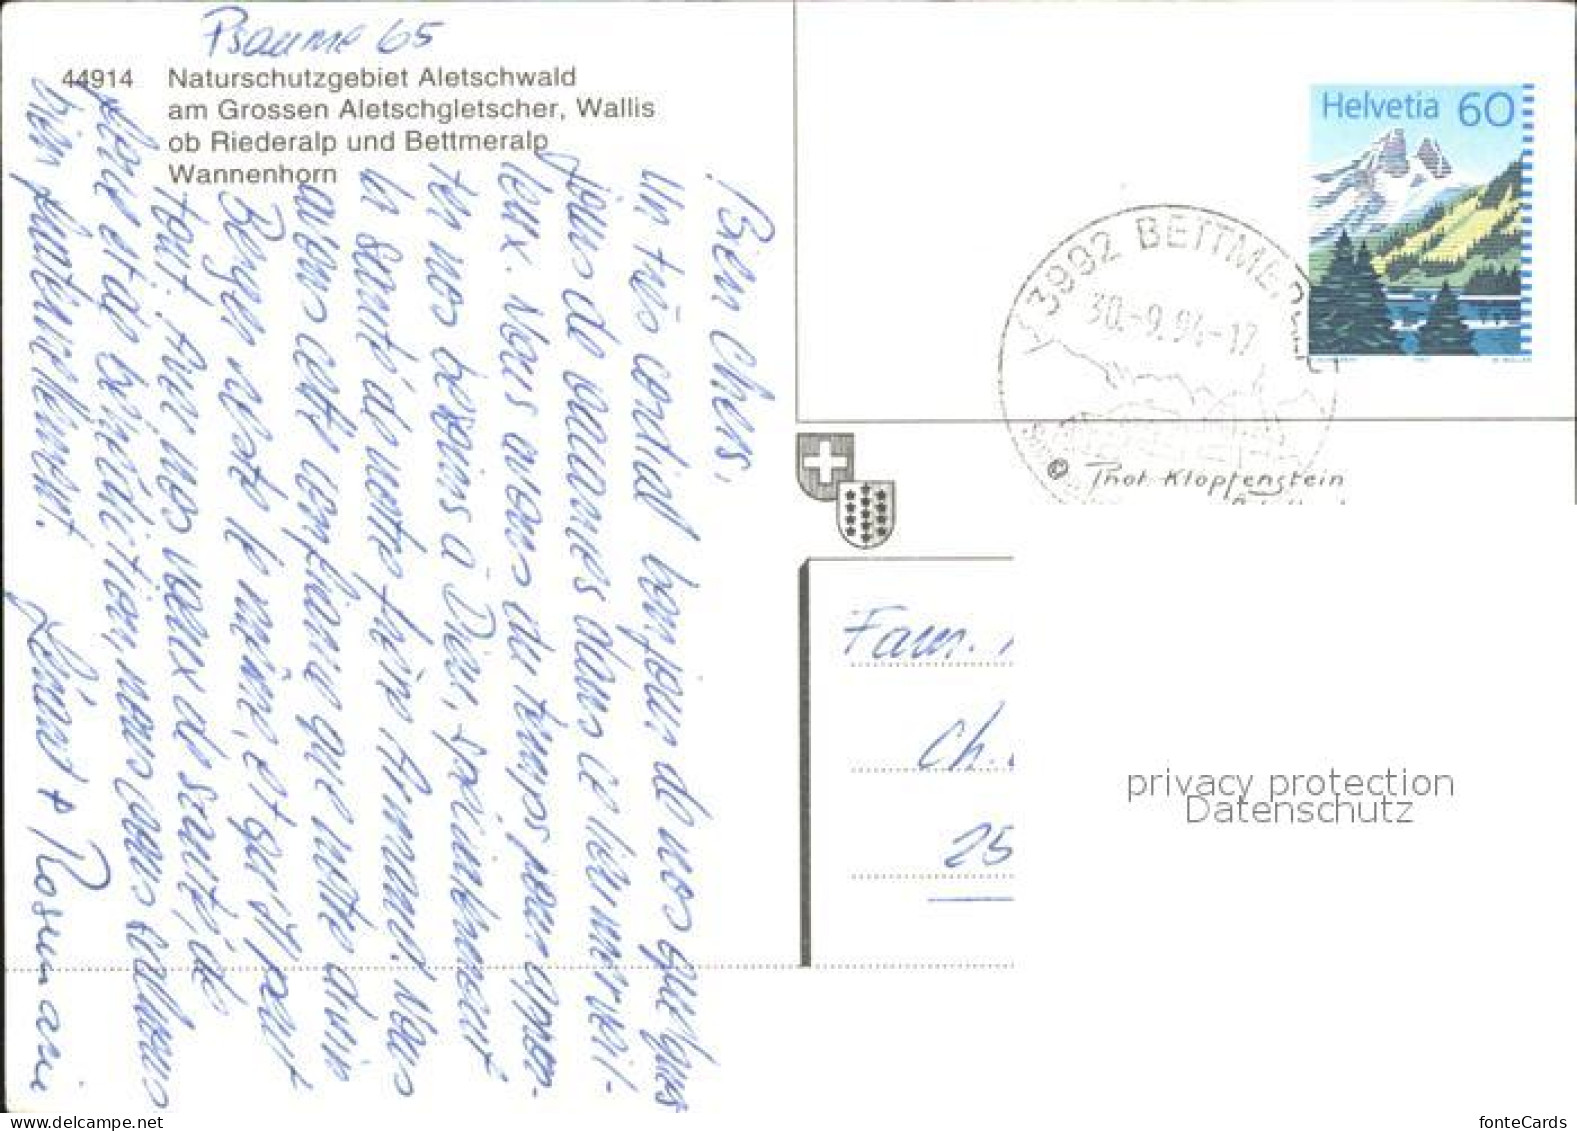 Psaume 65
44914 Naturschutzgebiet Aletschwald
am Grossen Aletschgletscher, Wallis
ob Riederalp und Bettmeralp
Wannenhorn
Bien Chers,
Un très cordial bonjour de nos quelques
jours de vacances dans ce lieu merveil-
leux. Nous avons du temps pour appor-
ter nos besoins à Dieu, spécialement
la santé de notre frère Armand. Nous
avons cette confiance que notre divin
Berger reste le même, et qu'il peut
tout. Avec nos voeux de santé, de
force et de bénédiction, nous vous saluons
bien fraternellement.
+ Rosemarie
Helvetia 60
3992 BETTMERALP
30.-9.94-17
© Phot. Klopfenstein
Fam.
Ch.
25
privacy protection
Datenschutz
www.delcampe.net
fonteCards